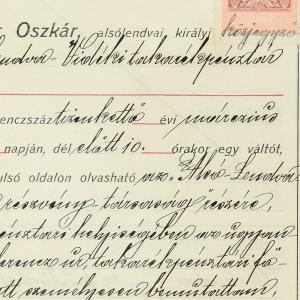 r Oszkár, alsólendvai, királyi közjegyző
endva-Vidéki takarékpénztár
enczszáz tizenkettő évi márczius
napján, dél előtt 10. órakor egy váltót,
ulsó oldalon olvasható az „Alsó-Lendva
részvény-társaság" részére,
énztári helyiségében az ugyan
erencz ur, takarékpénztári fő-
tt személyesen bemutattam,